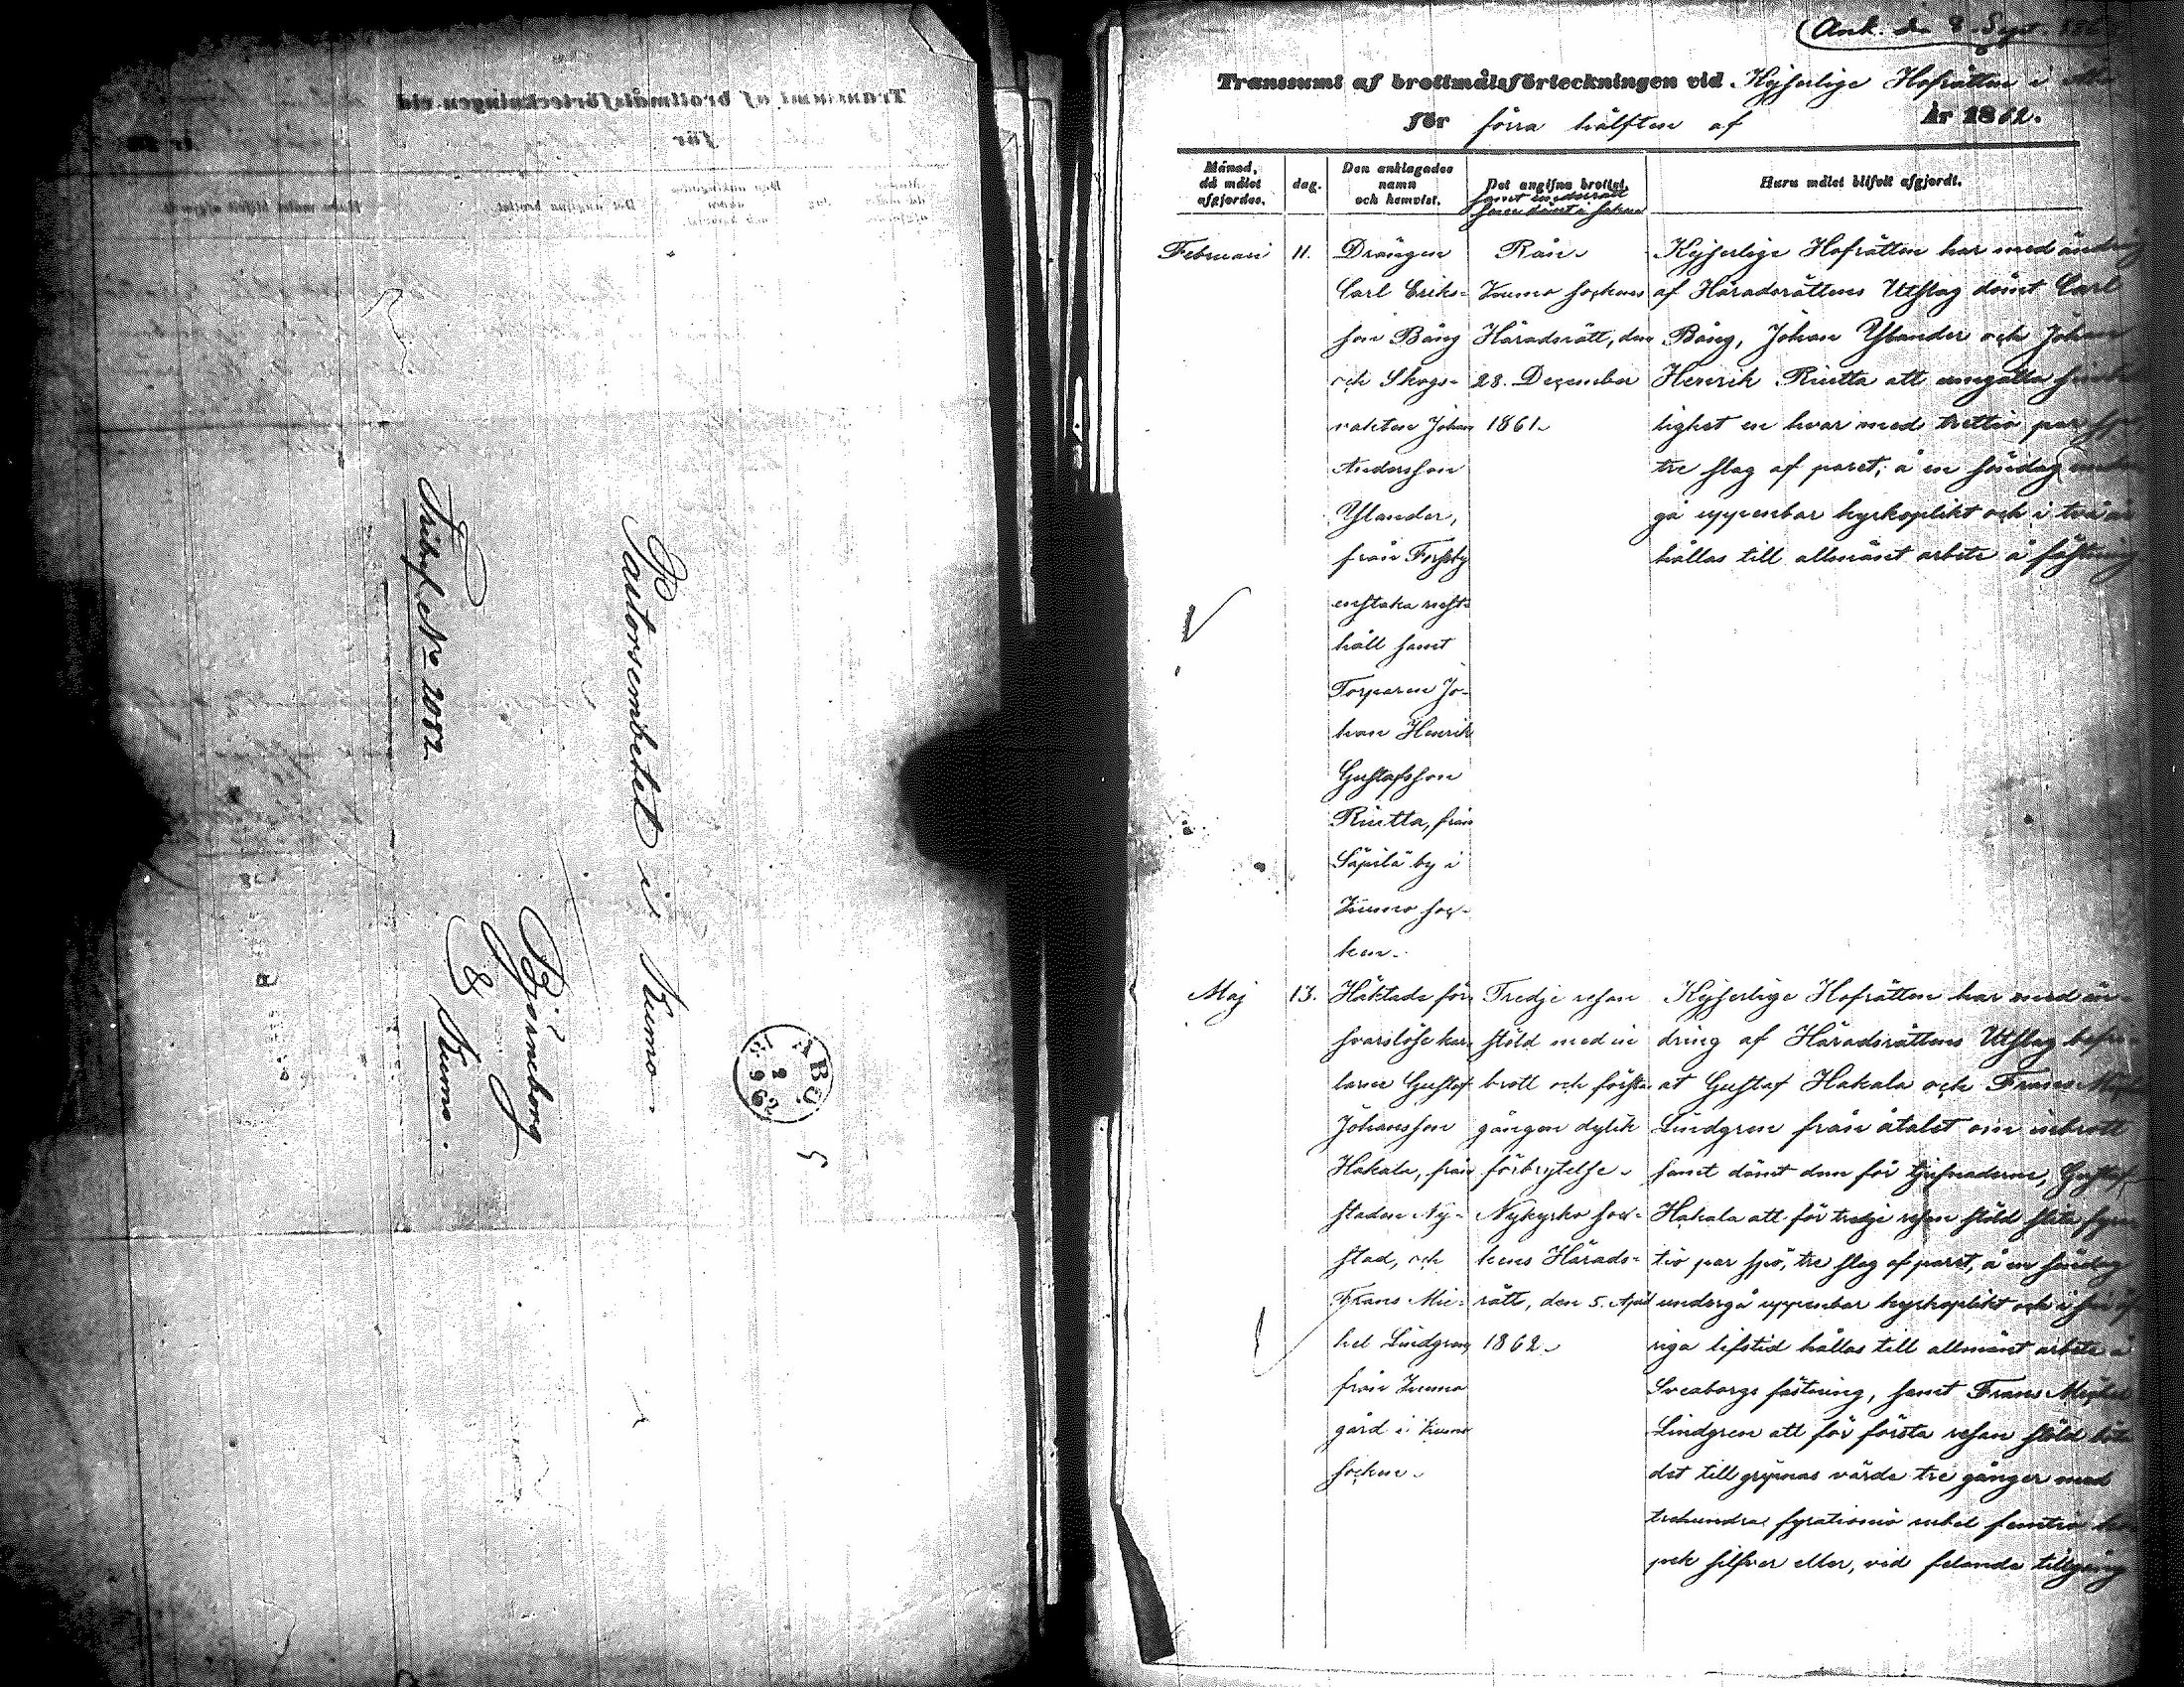 Fribref No 2082
Pastorsembetet i Kumo
Björneborg
& Kumo.
ÅBO.
2 9
62
(Ank. d. 8 Sept.
Transsumt af brottmålsförteckningen vid Kejserlige Hofrätten i
för förra hälften af År 1862.
Månad, då målet afgjordes.
dag.
Den anklagades namn och hemvist.
Det angifna brottet, samt underrätt
som dömt i saken
Huru målet blifvit afgjordt.
Februari 11.
Drängen
Carl Eriks-
son Bång
och Skogs-
vakten Johan
Andersson
Ylander,
från Forssby
enstaka rust-
håll samt
Torparen Jo-
han Henrik
Gustafsson
Riutta, från
Säpilä by i
Kumo soc-
ken.
Rån.
Kumo sockens
Häradsrätt, den
28. December
1861.
Kejserlige Hofrätten har med ändring
af Häradsrättens Utslag dömt Carl
Bång, Johan Ylander och Johan
Henrik Riutta att umgälla
en hvar med trettio par spö
tre slag af paret, å en söndag
gå uppenbar kyrkoplikt och i två år
hållas till allmänt arbete å fästning
Maj 13.
Häktade för-
svarslöse kar-
larne Gustaf
Johansson
Hakala, från
staden Ny-
stad, och
Frans Mic-
hel Lindgren,
från Kumo
gård i Kumo
socken.
Tredje resan
stöld med in
brott och första
gången dylik
förbrytelse.
Nykyrko soc-
kens Härads-
rätt, den 5. April
1862.
Kejserlige Hofrätten har med än-
dring af Häradsrättens Utslag befri-
at Gustaf Hakala och Frans Michel
Lindgren från åtalet om inbrott
samt dömt dem för tjufnaderne, Gustaf
Hakala att för tredje resan stöld slita fyra
tio par spö, tre slag af paret, å en söndag
undergå uppenbar kyrkoplikt och i sin öf
riga lifstid hållas till allmänt arbete å
Sveaborgs fästning, samt Frans Michel
Lindgren att för första resan stöld böta
det tillgripnas värde tre gånger med
trehundra fyrationio rubel femtio ko
pek silfver eller, vid felande tillgång